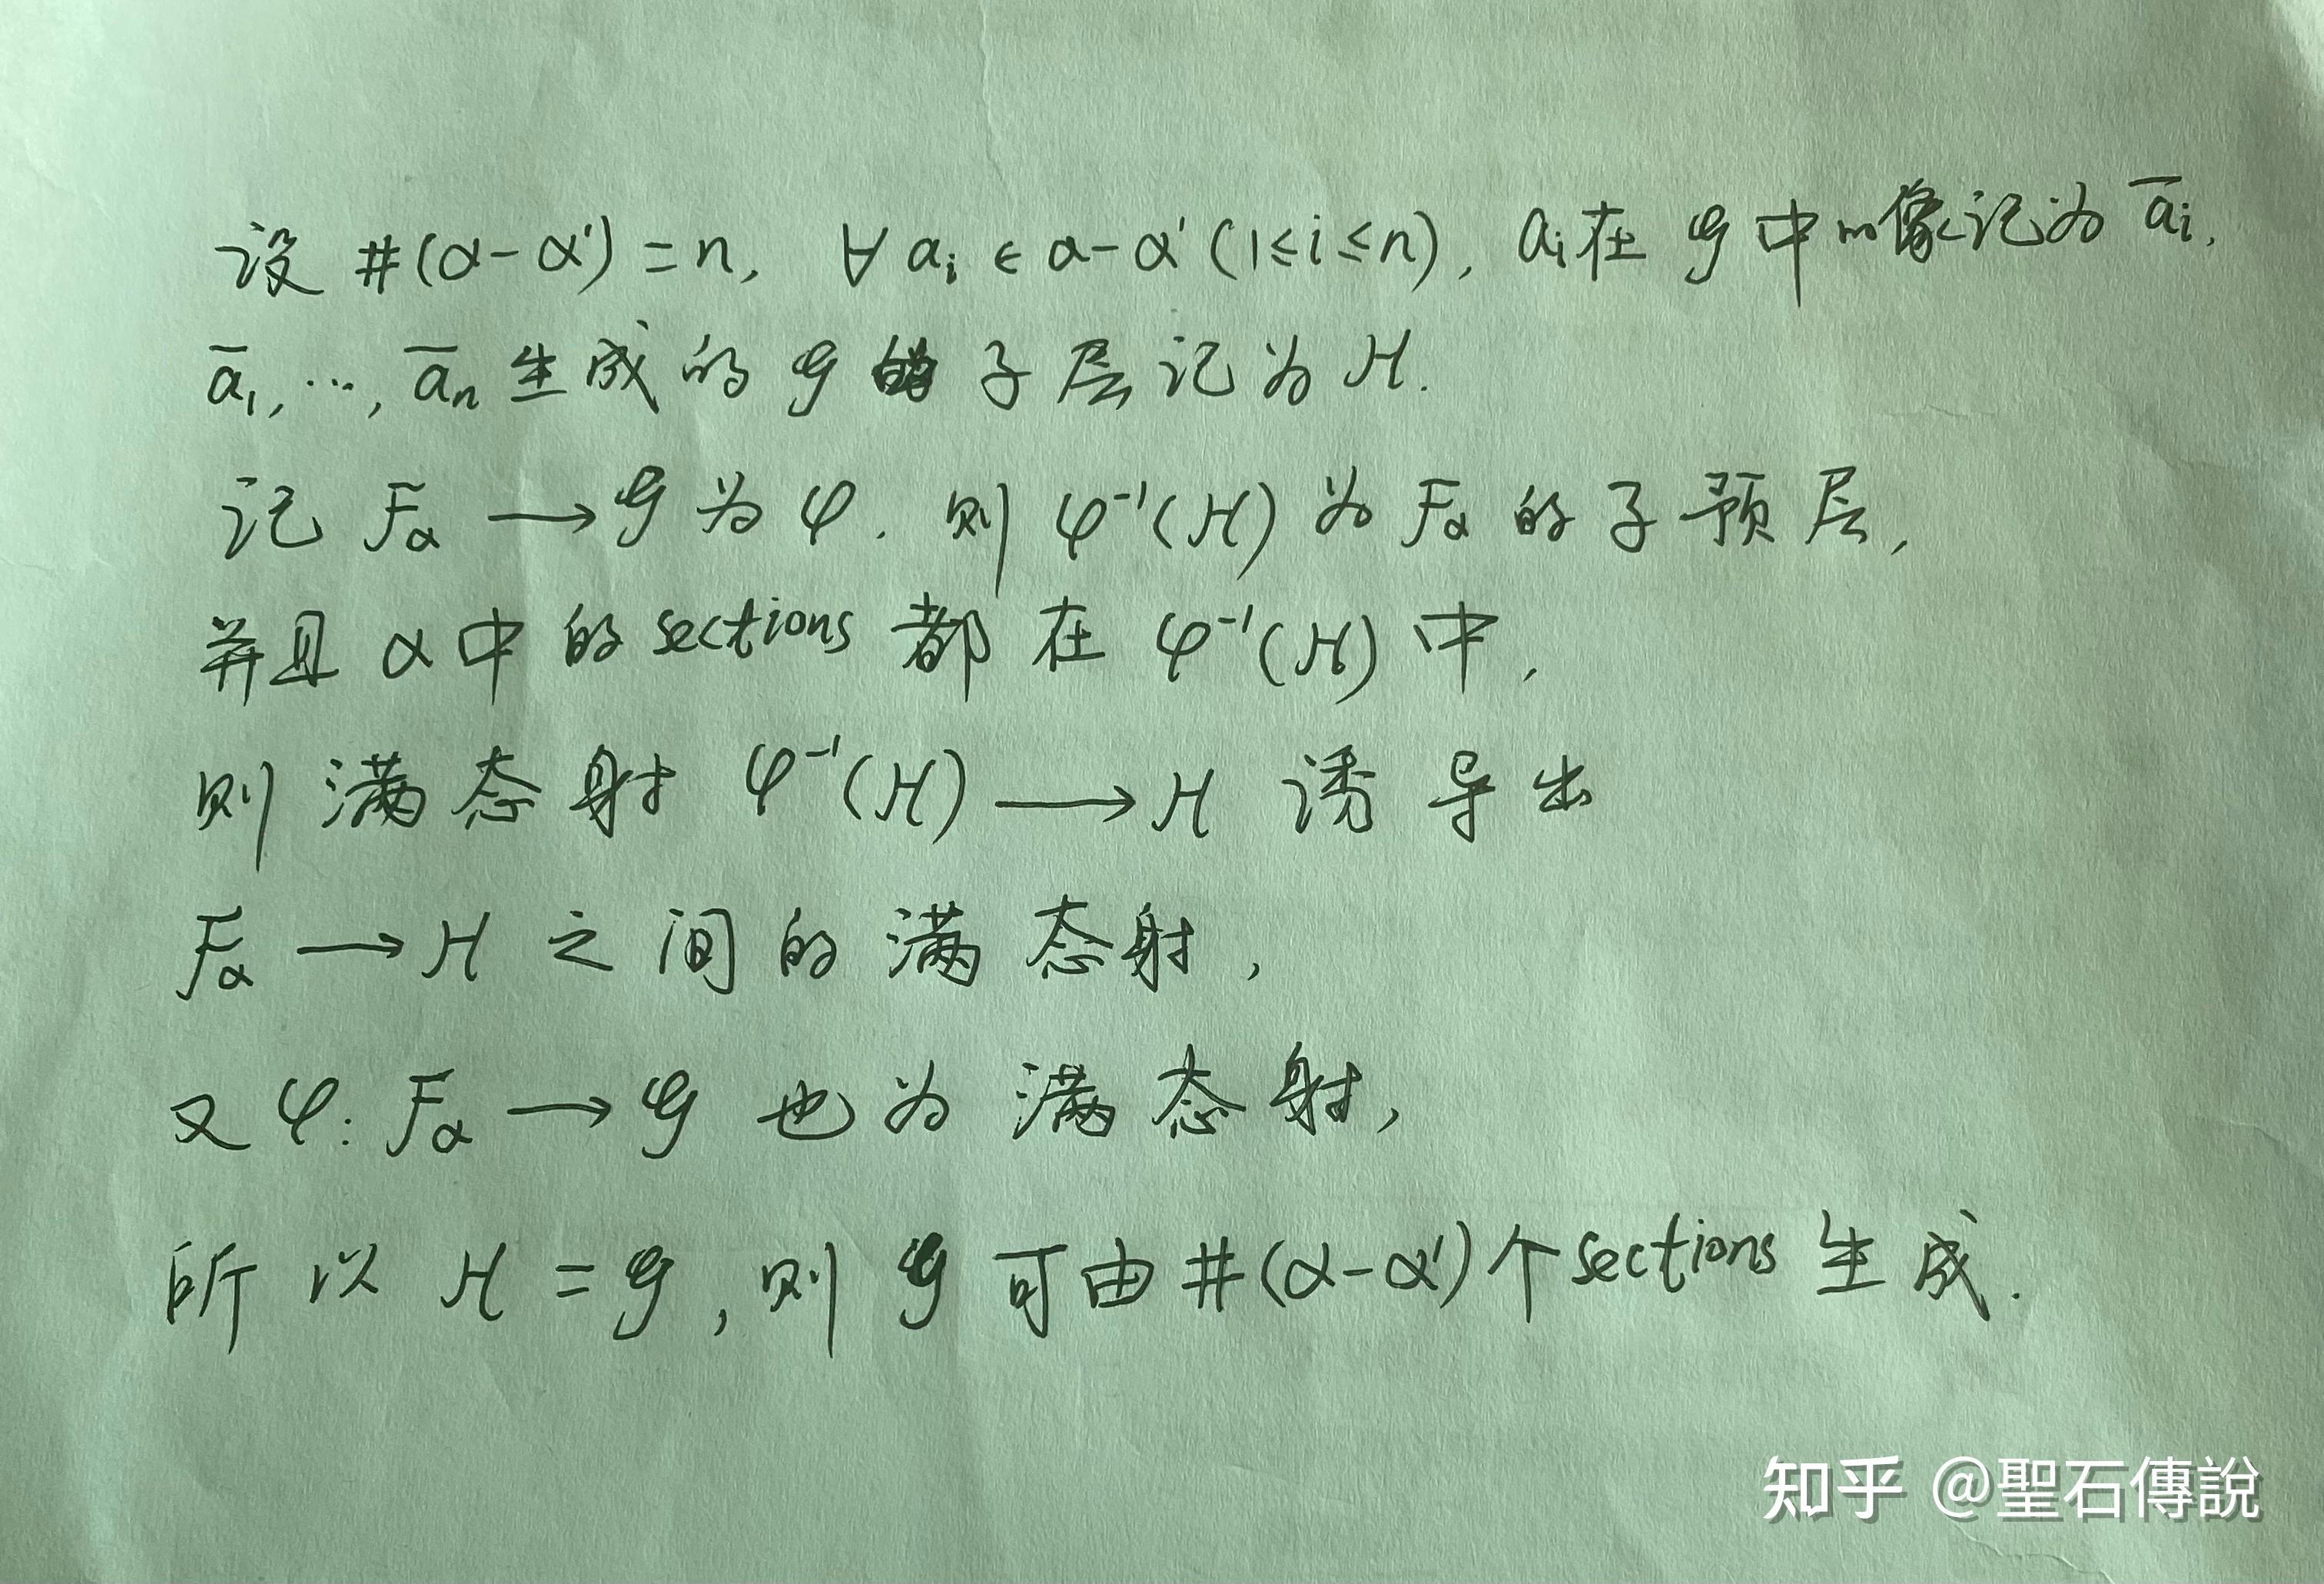 设 #(α-α')=n, ∀ aᵢ ∈ α-α' (1≤i≤n), aᵢ在 𝒢 中的像记为 āᵢ,
ā₁, ⋯, āₙ 生成的 𝒢 的子层记为 H.
记 Fα ⟶ 𝒢 为 φ. 则 φ⁻¹(H) 为 Fα 的子预层,
并且 α 中的 sections 都在 φ⁻¹(H) 中,
则满态射 φ⁻¹(H) ⟶ H 诱导出
Fα ⟶ H 之间的满态射,
又 φ: Fα ⟶ 𝒢 也为满态射,
所以 H = 𝒢, 则 𝒢 可由 #(α-α') 个 sections 生成.
知乎 @聖石傳說